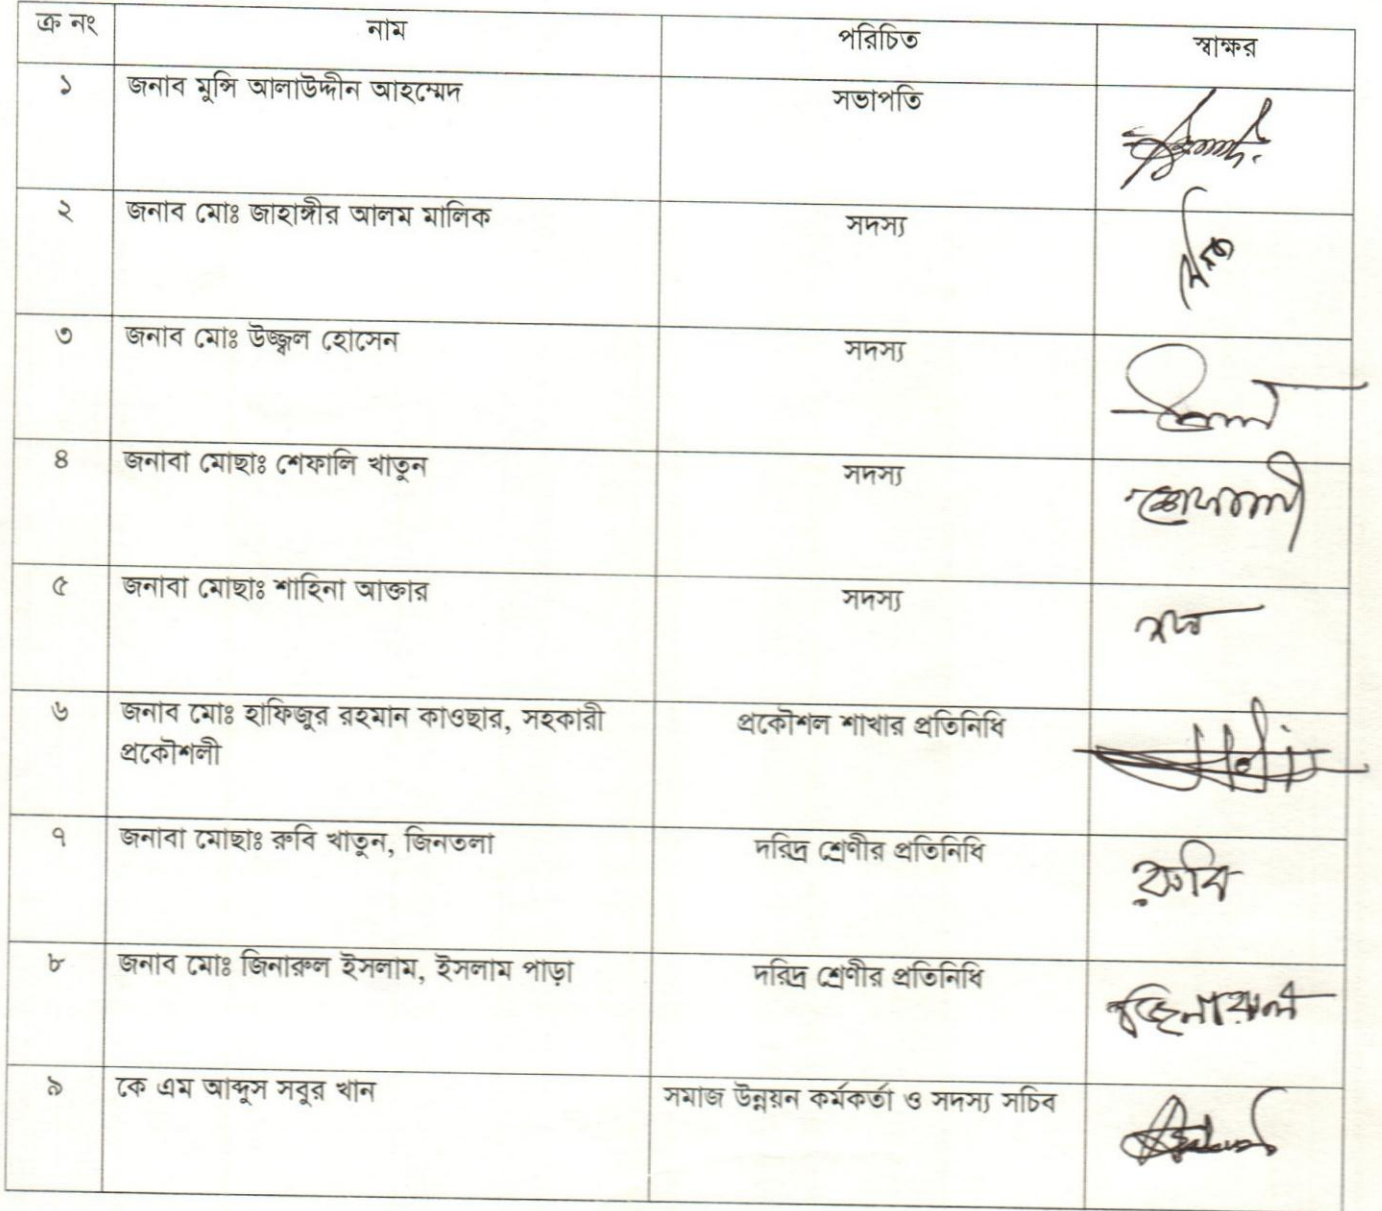 ক্র নং নাম পরিচিত স্বাক্ষর
১ জনাব মুন্সি আলাউদ্দীন আহম্মেদ সভাপতি
২ জনাব মোঃ জাহাঙ্গীর আলম মালিক সদস্য
৩ জনাব মোঃ উজ্জ্বল হোসেন সদস্য
৪ জনাবা মোছাঃ শেফালি খাতুন সদস্য শেফালী
৫ জনাবা মোছাঃ শাহিনা আক্তার সদস্য
৬ জনাব মোঃ হাফিজুর রহমান কাওছার, সহকারী প্রকৌশল শাখার প্রতিনিধি
প্রকৌশলী
৭ জনাবা মোছাঃ রুবি খাতুন, জিনতলা দরিদ্র শ্রেণীর প্রতিনিধি রুবি
৮ জনাব মোঃ জিনারুল ইসলাম, ইসলাম পাড়া দরিদ্র শ্রেণীর প্রতিনিধি জিনারুল
৯ কে এম আব্দুস সবুর খান সমাজ উন্নয়ন কর্মকর্তা ও সদস্য সচিব